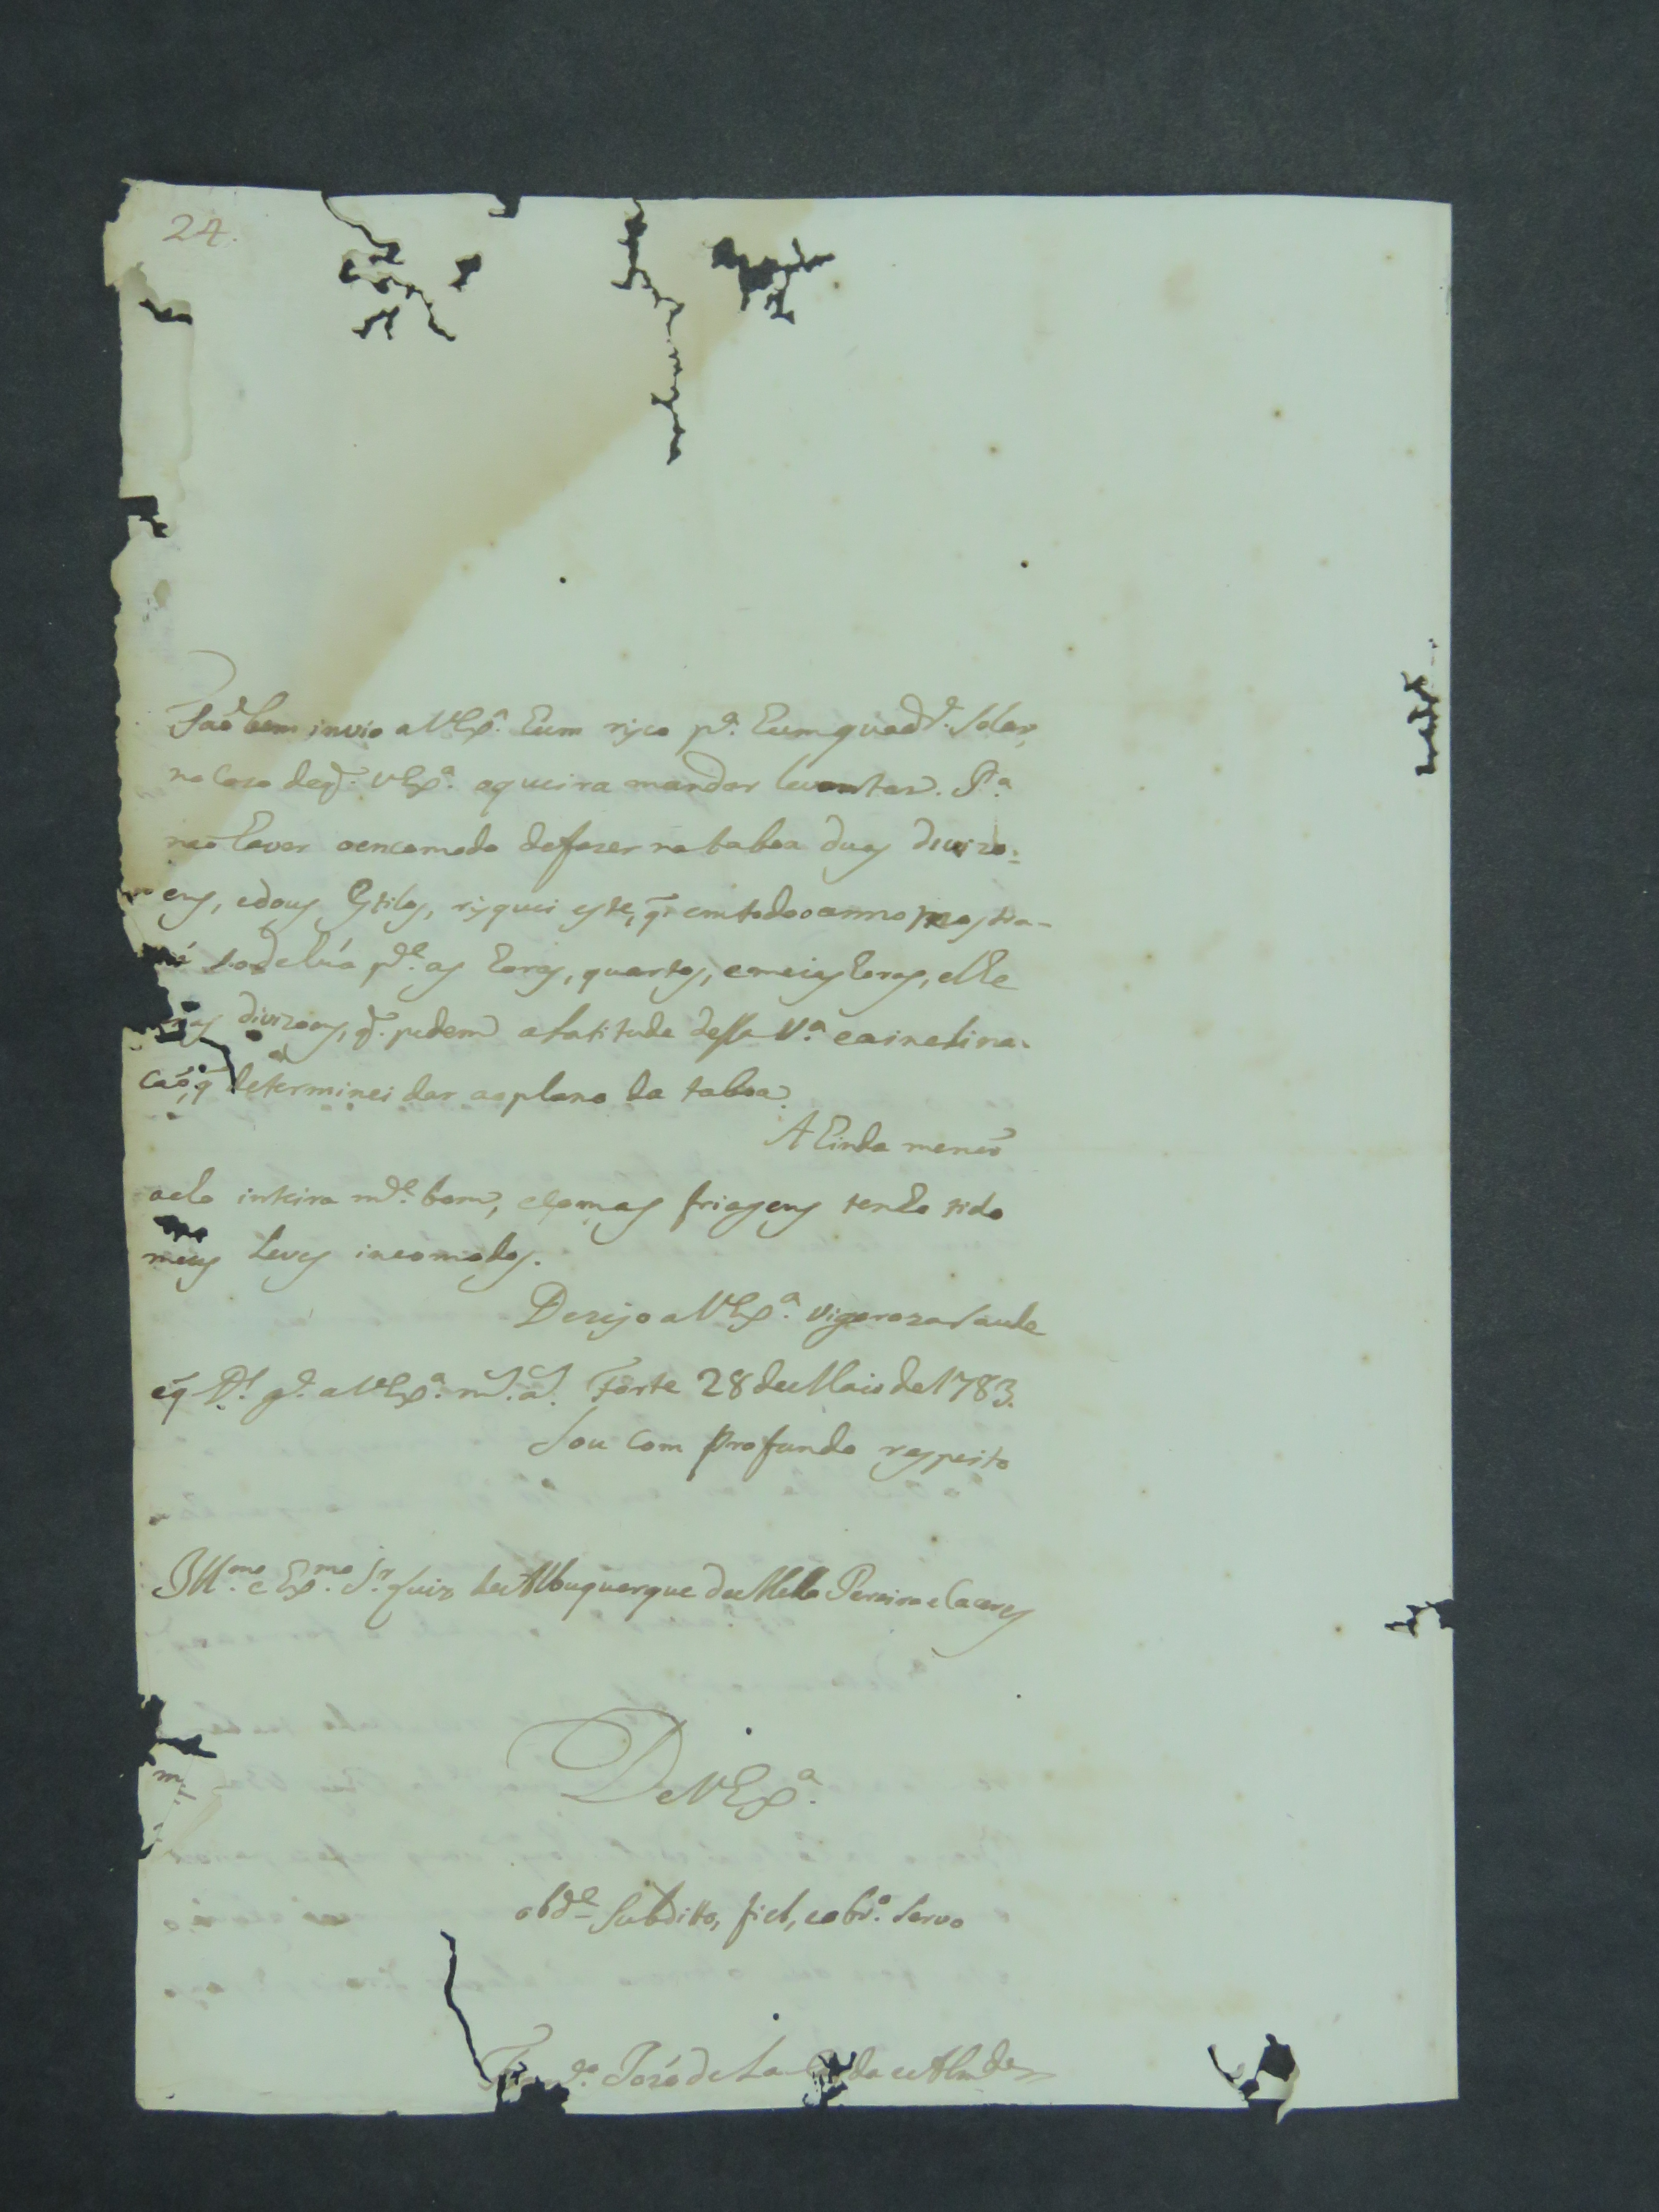 24.
Tãobem invio a V.Exª. hum risco pª. hum quadrᵉ. solar,
no caso de q̃. V.Exª. o queira mandar levantar. Pª.
nao haver o encomodo de fazer na taboa duas divizo-
ens, e dous Estilos, risquei este, q̃. em todo o anno mostra-
rá o dehúa pᵗᵉ. as horas, quartos, e meias horas, elhe
as divizoens, q̃. pedem a Latitude dessa Vª. e a inclina-
caó, q̃ determinei dar ao plano da taboa.
Ahinda menaõ
acho inteiram.ᵗᵉ bom, e com as friagens tenho tido
meus Leves incomodos.
Dezejo a V.Exª. vigoroza saude
e q̃ Dˢ. gᵈᵉ. a V.Exª. mˢ. aˢ. Forte 28 de Maio de 1783.
Sou com profundo respeito
Illᵐᵒ. e Exᵐᵒ. Sʳ. Luiz de Albuquerque de Mello Pereira e Caceres
De V.Exª.
obdᵉ subditto, fiel, e obrº. servo
Franᶜᵒ. Jozé de La-Cerda e Almdᵃ